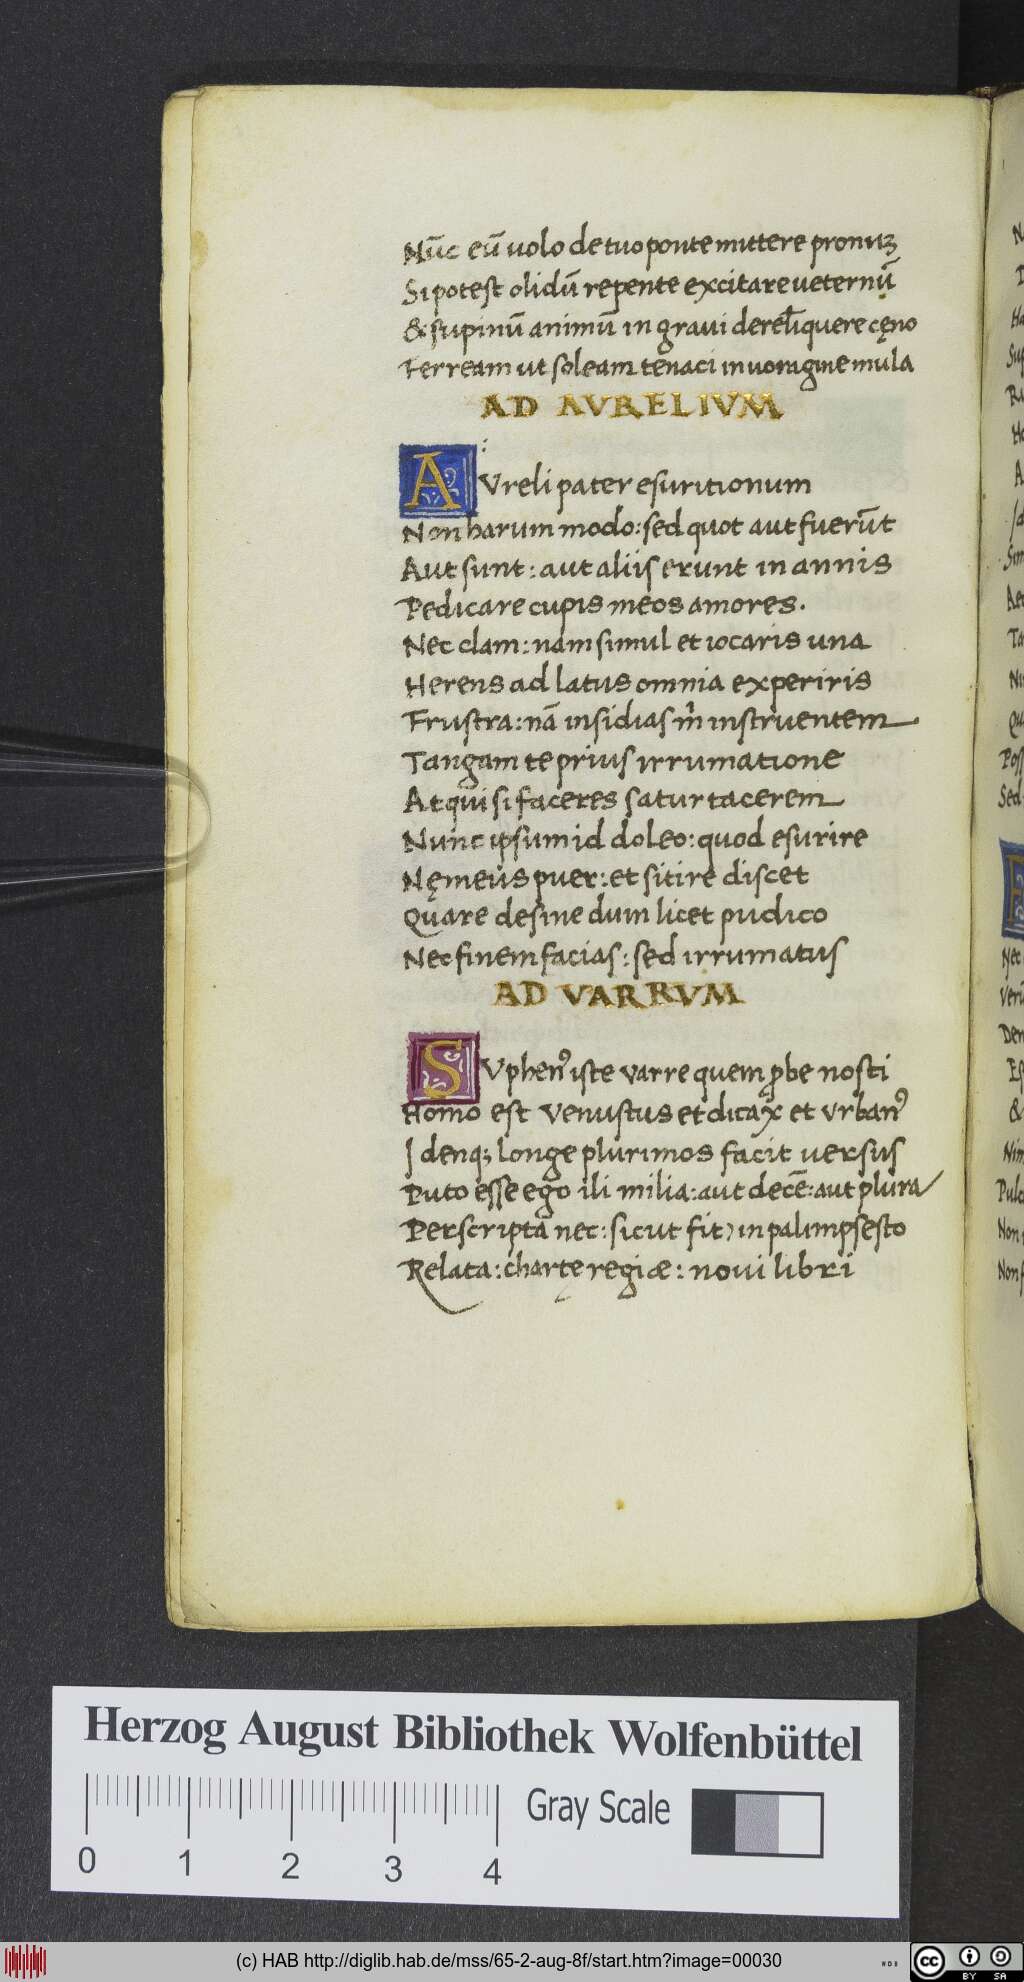 Nūc eū uolo de tuo ponte mittere pronuꝫ
Si potest olidū repente excitare ueternū
& supinū animū in graui derelīquere cęno
Ferream ut soleam tenaci in uoragine mula
AD AVRELIVM
AVreli pater esuritionum
Non harum modo: sed quot aut fuerūt
Aut sunt: aut aliis erunt in annis
Pedicare cupis meos amores.
Nec clam: nam simul et iocaris una
Herens ad latus omnia experiris
Frustra: nā insidias m̄ instruentem
Tangam te prius irrumatione
Atqui si faceres satur tacerem
Nunc ipsum id doleo: quod esurire
Nę meus puer: et sitire discet
Quare desine dum licet pudico
Nec finem facias: sed irrumatus
AD VARRVM
SVphenꝰ iste varre quem ꝓbe nosti
Homo est venustus et dicax et vrbanꝰ
Idenqꝫ longe plurimos facit uersus
Puto esse ego ili milia: aut decē: aut plura
Perscripta nec: sicut fit) in palimpsesto
Relata: chartę regiæ: noui libri
N
Ha
Sup
Ho
A
Sim
Ta
Ni
Qu
Poss
Sed
Nec
Verū
Den
Es
&
Nim
Pulc
Non
Non f
Herzog August Bibliothek Wolfenbüttel
Gray Scale
0 1 2 3 4
(c) HAB http://diglib.hab.de/mss/65-2-aug-8f/start.htm?image=00030
cc BY SA